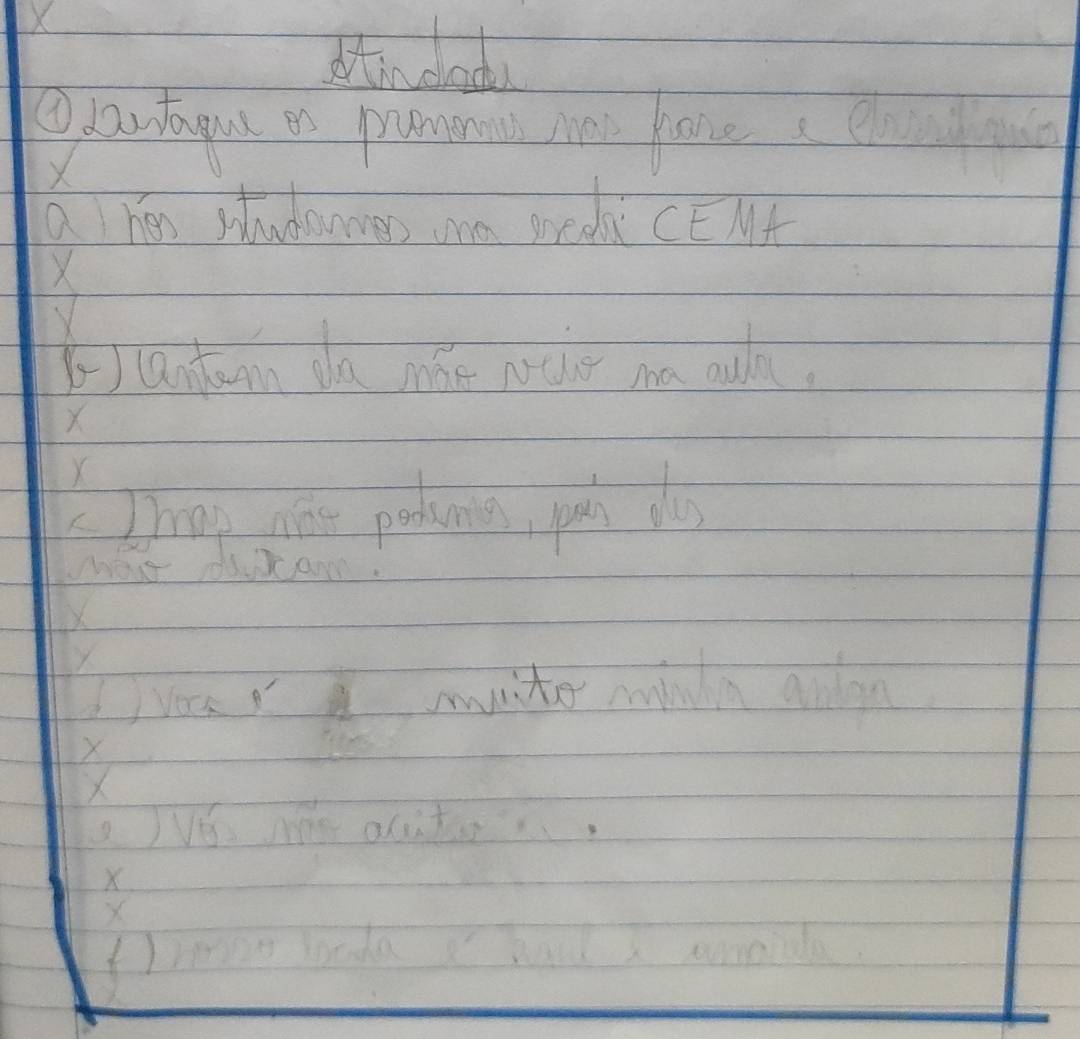 Atividade
① Destaque os pronomes nas frase e Classifiquies
X
a) nós estudamos na escola CEMA
X
X
b) ontem ela não veio na aula.
X
X
c) mas não podemos, pois eles
não deixam.
X
X
d) você é muito minha amiga
X
X
e) Vós não
X
X
f) é e amarela.